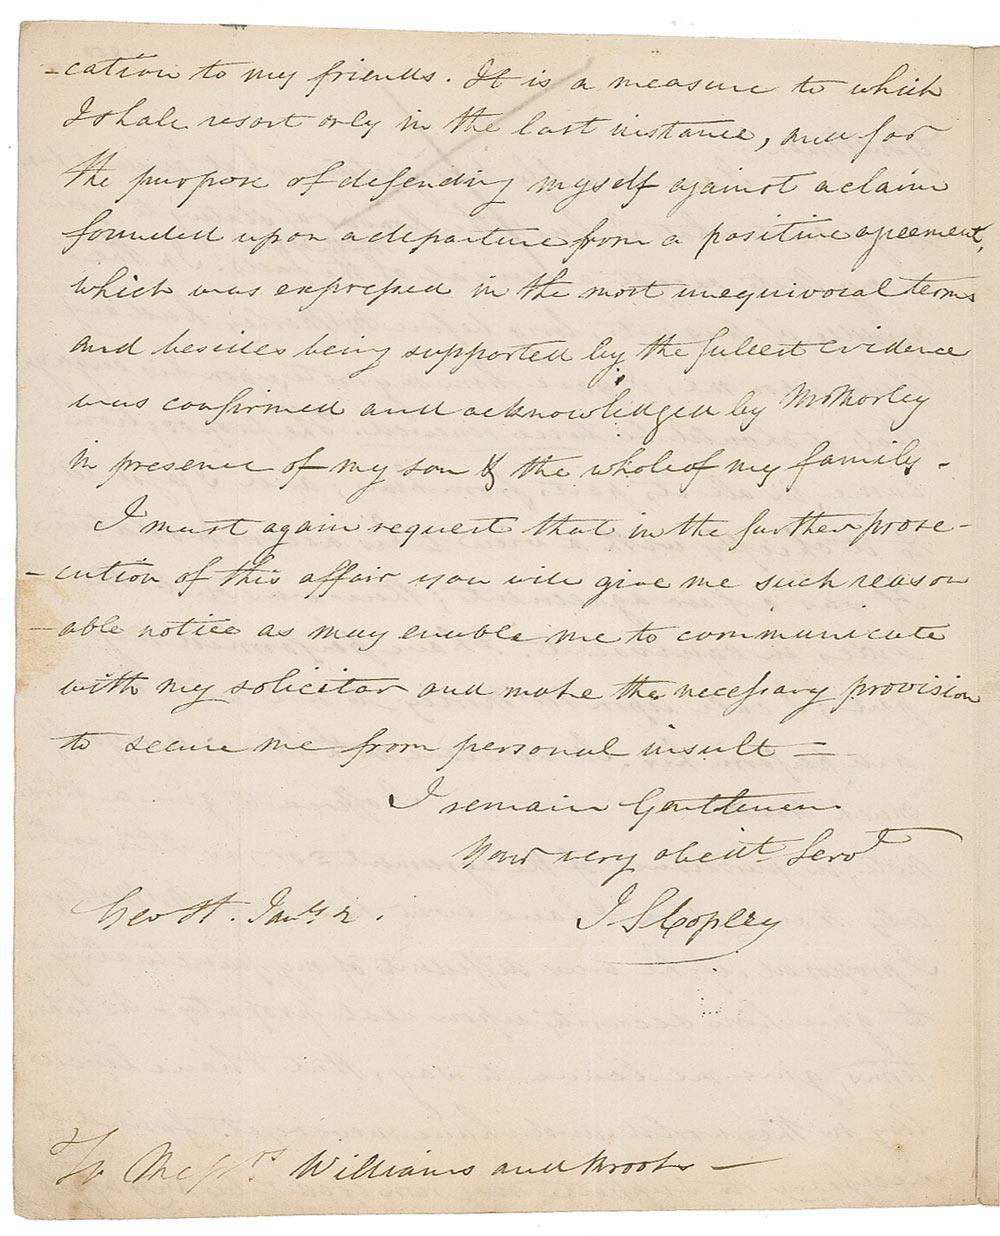 -cation to my friends. It is a measure to which
I shall resort only in the last instance, and for
the purpose of defending myself against a claim
founded upon a departure from a positive agreement,
which was expressed in the most unequivocal terms
and besides being supported by the fullest evidence
was confirmed and acknowledged by Mr Morley
in presence of my son & the whole of my family.
I must again request that in the further prose-
-cution of this affair you will give me such reason
-able notice as may enable me to communicate
with my solicitor and make the necessary provision
to secure me from personal insult —
I remain Gentlemen
Your very obedt Servt
Geo St. Jany 2.
J S Copley
To Messrs Williams and Brooks —